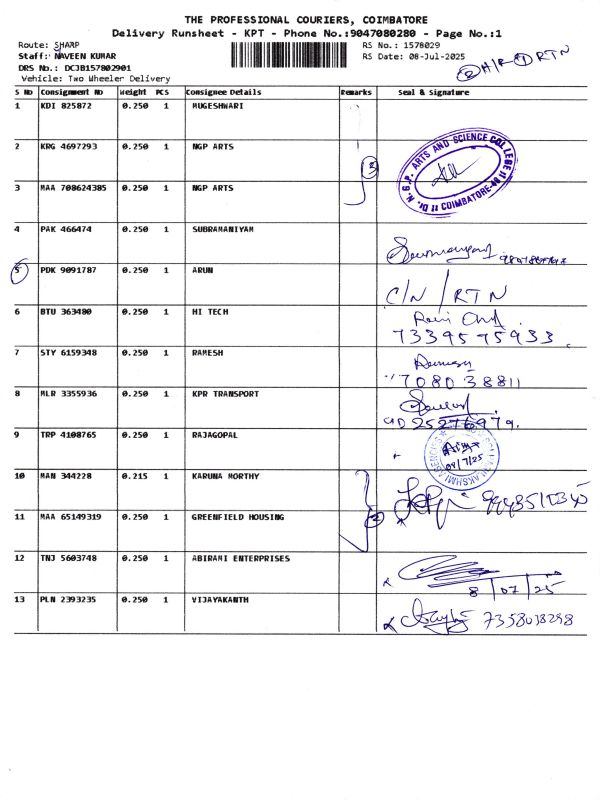 THE PROFESSIONAL COURIERS, COIMBATORE
Delivery Runsheet - KPT - Phone No.:9047080280 - Page No.:1
Route: SHARP
Staff: NAVEEN KUMAR
DRS No.: DCJB157802901
Vehicle: Two Wheeler Delivery
RS No.: 1578029
RS Date: 08-Jul-2025
RTN
S NO Consignment NO Weight PCS Consignee Details Remarks Seal & Signature
1 KDI 825872 0.250 1 MUGESHWARI
2 KRG 4697293 0.250 1 NGP ARTS
3 MAA 708624385 0.250 1 NGP ARTS
2
Dr. N.G.P. ARTS AND SCIENCE COLLEGE
COIMBATORE-48
4 PAK 466474 0.250 1 SUBRAMANIYAM
5 PDK 9091787 0.250 1 ARUN C/N / RTN
6 BTU 363480 0.250 1 HI TECH
7339575933
7 STY 6159348 0.250 1 RAMESH
7080 38811
8 MLR 3355936 0.250 1 KPR TRANSPORT
9 TRP 4108765 0.250 1 RAJAGOPAL
LAKSHMI AGENCIES
09/7/25
10 MAN 344228 0.215 1 KARUNA MORTHY
11 MAA 65149319 0.250 1 GREENFIELD HOUSING
2
12 TNJ 5603748 0.250 1 ABIRAMI ENTERPRISES
8/07/25
13 PLN 2393235 0.250 1 VIJAYAKANTH
7358038298